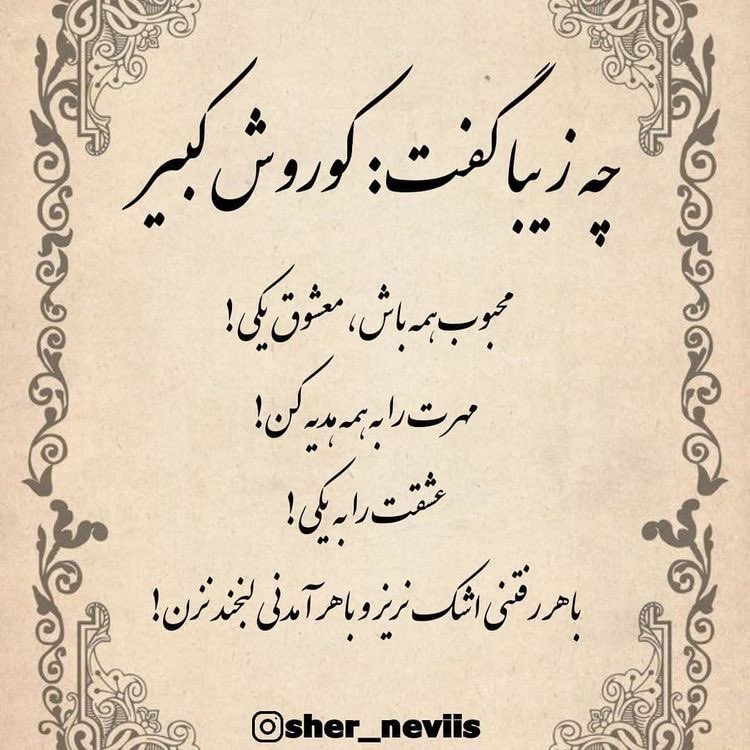 چه زیبا گفت: کوروش کبیر
محبوب همه باش، معشوق یکی!
مهرت را به همه هدیه کن!
عشقت را به یکی!
با هر رفتنی اشک نریز و با هر آمدنی لبخند نزن!
sher_neviis